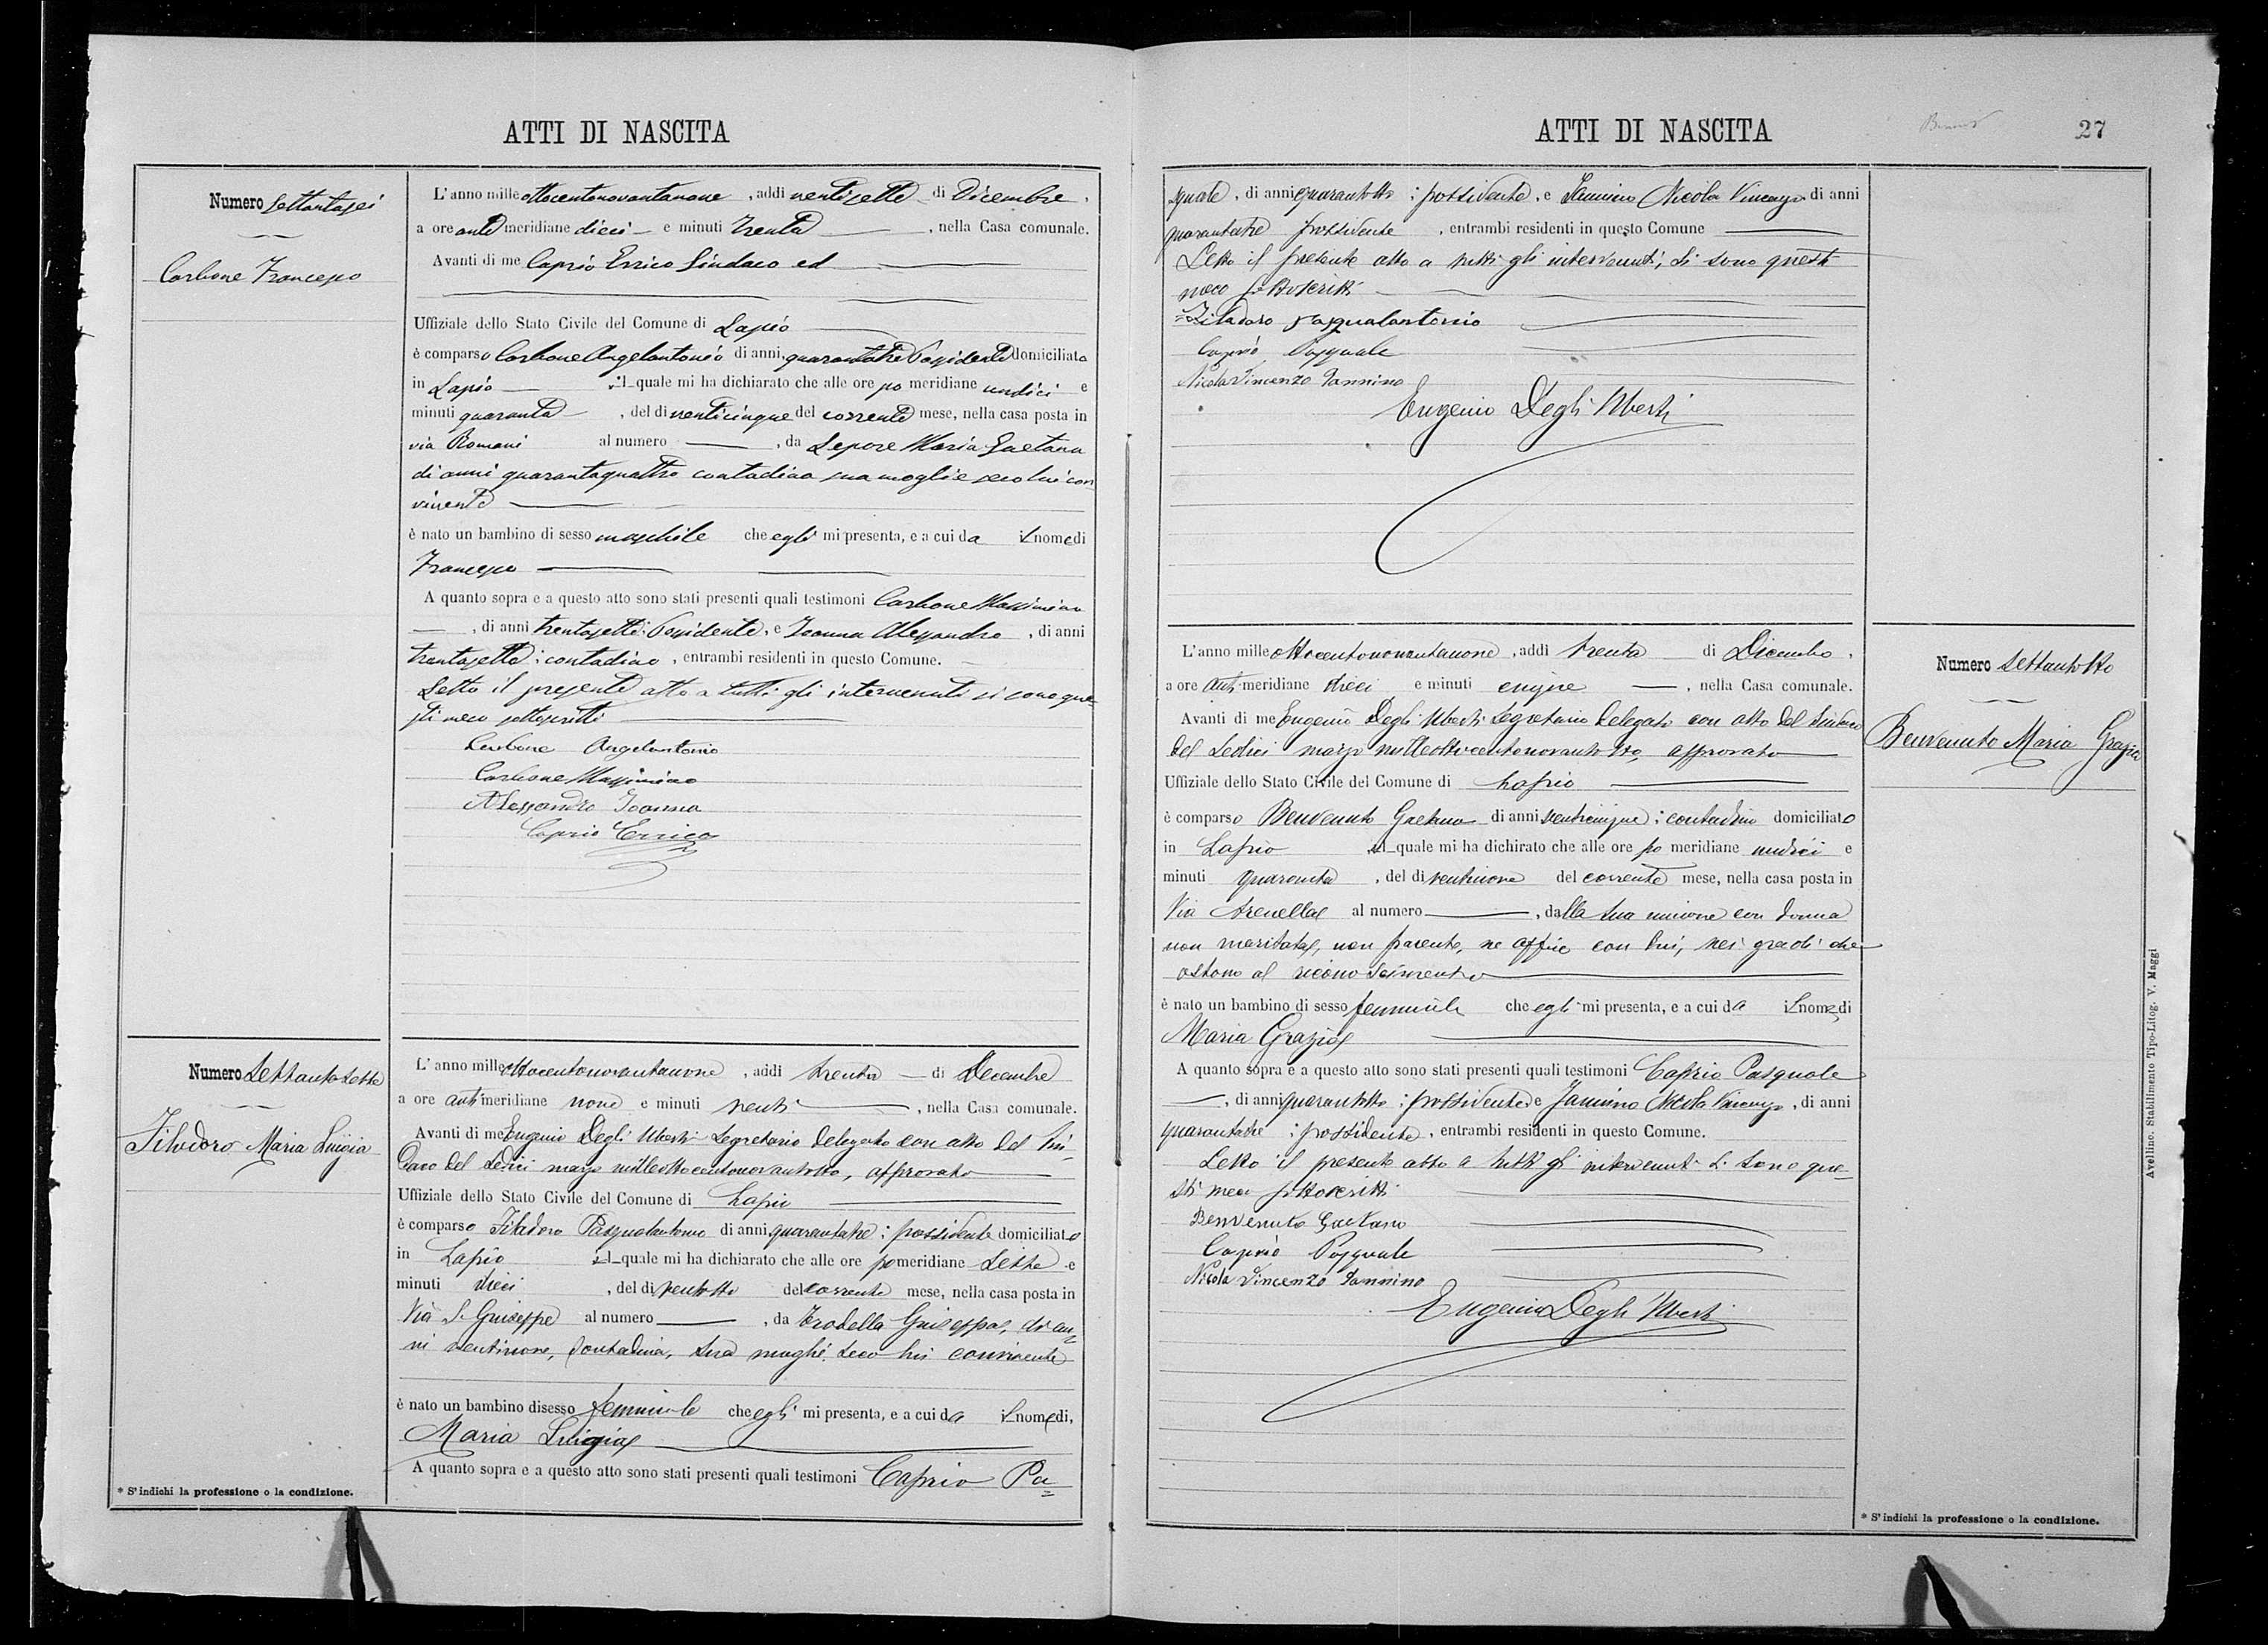 ATTI DI NASCITA
Numero settantasei
Carbone Francesco
L'anno mille ottocentonovantanove, addì ventisette di Dicembre,
a ore ante meridiane dieci e minuti trenta, nella Casa comunale.
Avanti di me Caprio Errico Sindaco ed
Uffiziale dello Stato Civile del Comune di Lapio
è comparso Carbone Angelantonio di anni, quarantatre Possidente domiciliato
in Lapio il quale mi ha dichiarato che alle ore po meridiane undici e
minuti quaranta, del dì venticinque del corrente mese, nella casa posta in
via Romani al numero, da Lepore Maria Gaetana
di anni quarantaquattro contadina sua moglie seco lui con
vivente
è nato un bambino di sesso maschile che egli mi presenta, e a cui da il nome di
Francesco
A quanto sopra e a questo atto sono stati presenti quali testimoni Carbone Massimino
, di anni trentasette: Possidente, e Ioanna Alessandro, di anni
trentasette: contadino, entrambi residenti in questo Comune.
Letto il presente atto a tutti gli intervenuti si sono que-
sti meco sottoscritti
Carbone Angelantonio
Carbone Massimino
Alessandro Ioanna
Caprio Errico
Numero Settantasette
Filadoro Maria Luigia
L'anno mille ottocentonovantanove, addì trenta di Decembre
a ore anti meridiane nove e minuti venti, nella Casa comunale.
Avanti di me Eugenio Degli Uberti Segretario delegato con atto del Sin-
daco del sedici marzo milleottocentonovantotto, approvato
Uffiziale dello Stato Civile del Comune di Lapio
è comparso Filadoro Pasqualantonio di anni quarantatre; possidente domiciliato
in Lapio il quale mi ha dichiarato che alle ore po meridiane Sette e
minuti dieci, del dì ventotto del corrente mese, nella casa posta in
Via S. Giuseppe al numero, da Trodella Giuseppa, di an-
ni ventinove, contadina, sua moglie seco lui convivente
è nato un bambino di sesso femminile che egli mi presenta, e a cui da il nome di,
Maria Luigia
A quanto sopra e a questo atto sono stati presenti quali testimoni Caprio Pa=
* S'indichi la professione o la condizione.
ATTI DI NASCITA
27
squale, di anni quarantotto; possidente, e Iannino Nicola Vincenzo di anni
quarantatre possidente, entrambi residenti in questo Comune
Letto il presente atto a tutti gli intervenuti, si sono questi
meco sottoscritti
Filadoro Pasqualantonio
Caprio Pasquale
Nicola Vincenzo Iannino
Eugenio Degli Uberti
L'anno mille ottocentonovantanove, addì trenta di Dicembre,
a ore anti meridiane dieci e minuti cinque, nella Casa comunale.
Avanti di me Eugenio Degli Uberti Segretario delegato con atto del Sindaco
del sedici marzo milleottocentonovantotto, approvato
Uffiziale dello Stato Civile del Comune di Lapio
è comparso Benvenuto Gaetano di anni venticinque; contadino domiciliato
in Lapio il quale mi ha dichirato che alle ore po meridiane undici e
minuti quaranta, del dì ventinove del corrente mese, nella casa posta in
Via Arenella al numero, dalla sua unione con donna
non maritata, non parente, ne affine con lui, nei gradi che
ostano al riconoscimento
è nato un bambino di sesso femminile che egli mi presenta, e a cui da il nome di
Maria Grazia
A quanto sopra e a questo atto sono stati presenti quali testimoni Caprio Pasquale
, di anni quarantotto; possidente e Iannino Nicola Vincenzo, di anni
quarantatre; possidente, entrambi residenti in questo Comune.
Letto il presente atto a tutti gli intervenuti si sono que-
sti meco sottoscritti
Benvenuto Gaetano
Caprio Pasquale
Nicola Vincenzo Iannino
Eugenio Degli Uberti
Numero settantotto
Benvenuto Maria Grazia
* S'indichi la professione o la condizione.
Avellino. Stabilimento Tipo-Litog. V. Maggi